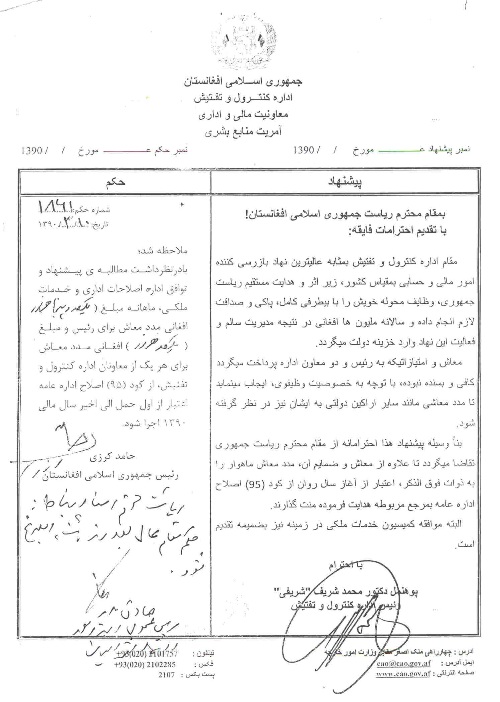 جمهوری اسلامی افغانستان
اداره کنترول و تفتیش
معاونیت مالی و اداری
آمریت منابع بشری
نمبر پیشنهاد مورخ / / 1390
نمبر حکم مورخ / / 1390
پیشنهاد
بمقام محترم ریاست جمهوری اسلامی افغانستان!
با تقدیم احترامات فایقه:
مقام اداره کنترول و تفتیش بمثابه عالیترین نهاد بازرسی کننده
امور مالی و حسابی بمقیاس کشور، زیر اثر و هدایت مستقیم ریاست
جمهوری، وظایف محوله خویش را با بیطرفی کامل، پاکی و صداقت
لازم انجام داده و سالانه ملیون ها افغانی در نتیجه مدیریت سالم و
فعالیت این نهاد وارد خزینه دولت میگردد.
معاش و امتیازاتیکه به رئیس و دو معاون اداره پرداخت میگردد
کافی و بسنده نبوده، با توجه به خصوصیت وظیفوی، ایجاب مینماید
تا مدد معاشی مانند سایر اراکین دولتی به ایشان نیز در نظر گرفته
شود.
بناً وسیله پیشنهاد هذا احترامانه از مقام محترم ریاست جمهوری
تقاضا میگردد تا علاوه از معاش و ضمایم آن، مدد معاش ماهوار را
به ذوات فوق الذکر، اعتبار از آغاز سال روان از کود (95) اصلاح
اداره عامه بمرجع مربوطه هدایت فرموده منت گذارند.
البته موافقه کمیسیون خدمات ملکی در زمینه نیز بضمیمه تقدیم
است.
با احترام
پوهنمل دکتور محمد شریف "شریفی"
رئیس اداره کنترول و تفتیش
حکم
شماره حکم: ۱۸۶۱
تاریخ: ۱۳۹۰
ملاحظه شد؛
بادرنظرداشت مطالبه ی پیشنهاد و
توافق اداره اصلاحات اداری و خدمات
ملکی، ماهانه مبلغ (
افغانی مدد معاش برای رئیس و مبلغ
( ) افغانی مدد معاش
برای هر یک از معاونان اداره کنترول و
تفتیش، از کود (۹۵) اصلاح اداره عامه
اعتبار از اول حمل الی اخیر سال مالی
۱۳۹۰ اجرا شود.
حامد کرزی
رئیس جمهوری اسلامی افغانستان
ریاست محترم
حکم مقام عالی
شود.
آدرس : چهارراهی ملک اصغر مقابل وزارت امور خارجه
ایمل آدرس : cao@cao.gov.af
صفحه انترنتی : www.cao.gov.af
تیلفون : +93(020) 2101757
فکس : +93(020) 2102285
پست بکس : 2107